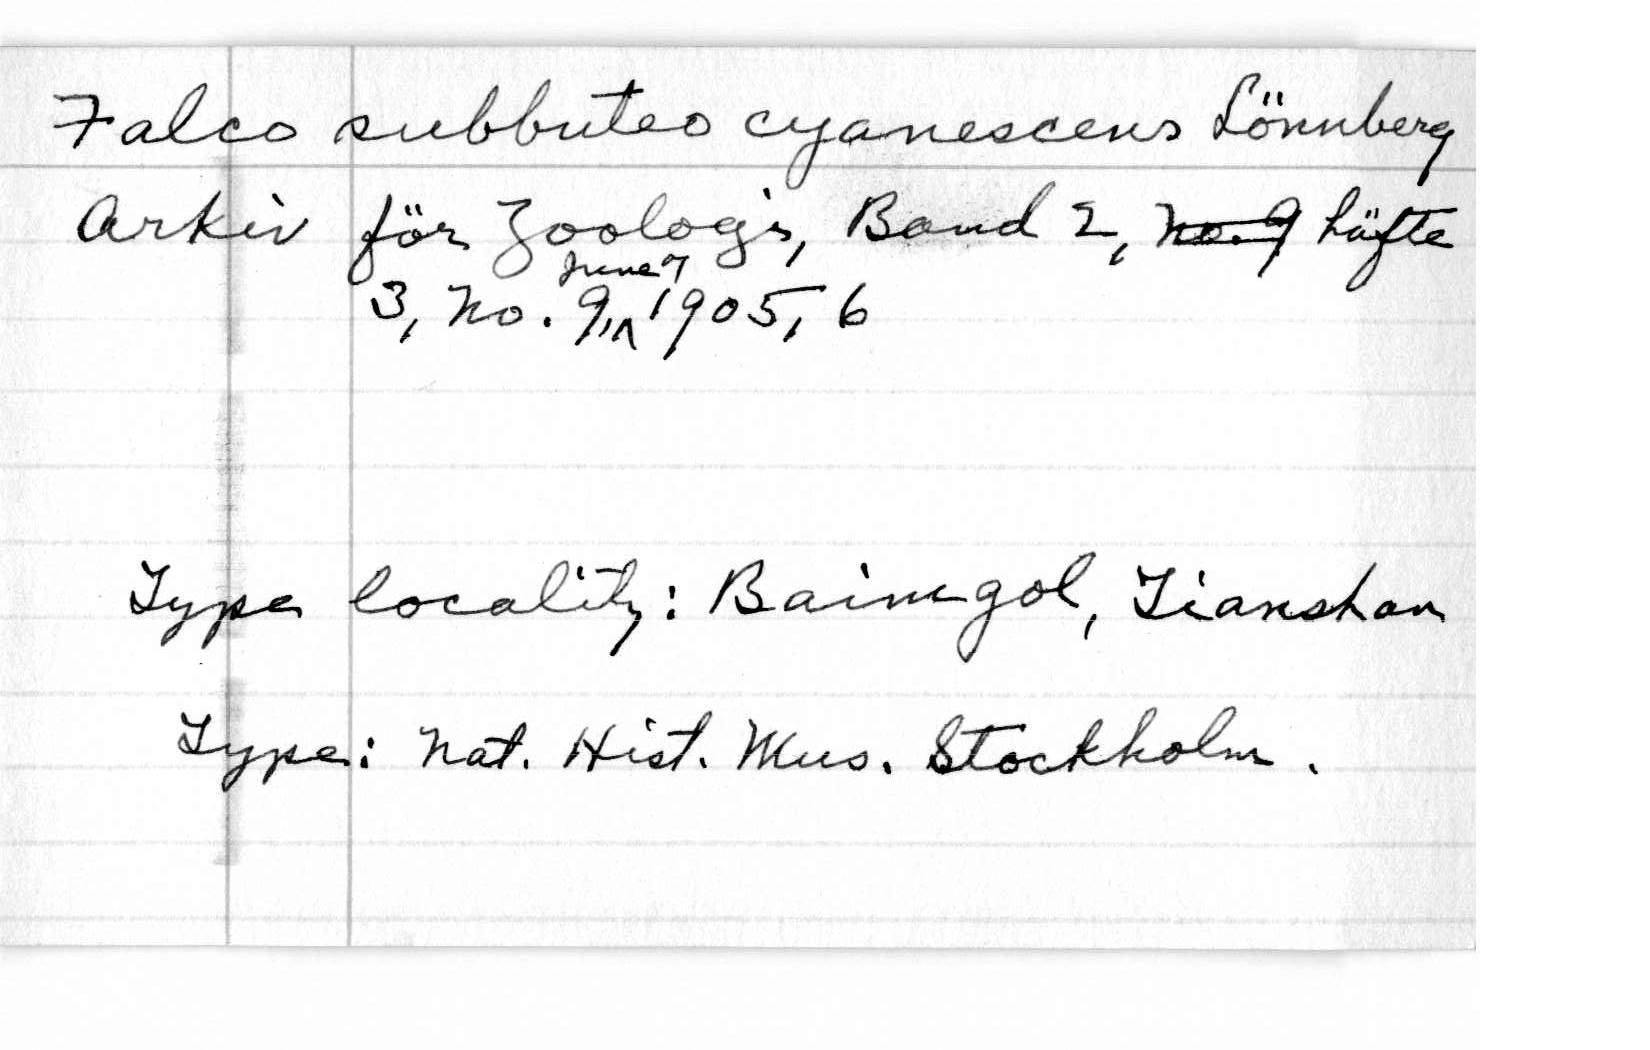 Falco subbuteo cyanescens Lönnberg
Arkiv för Zoologi, Band 2, ~~No. 9~~ häfte
3, No. 9, June 7 1905, 6
Type locality: Baimgol, Tianshan
Type: Nat. Hist. Mus. Stockholm.